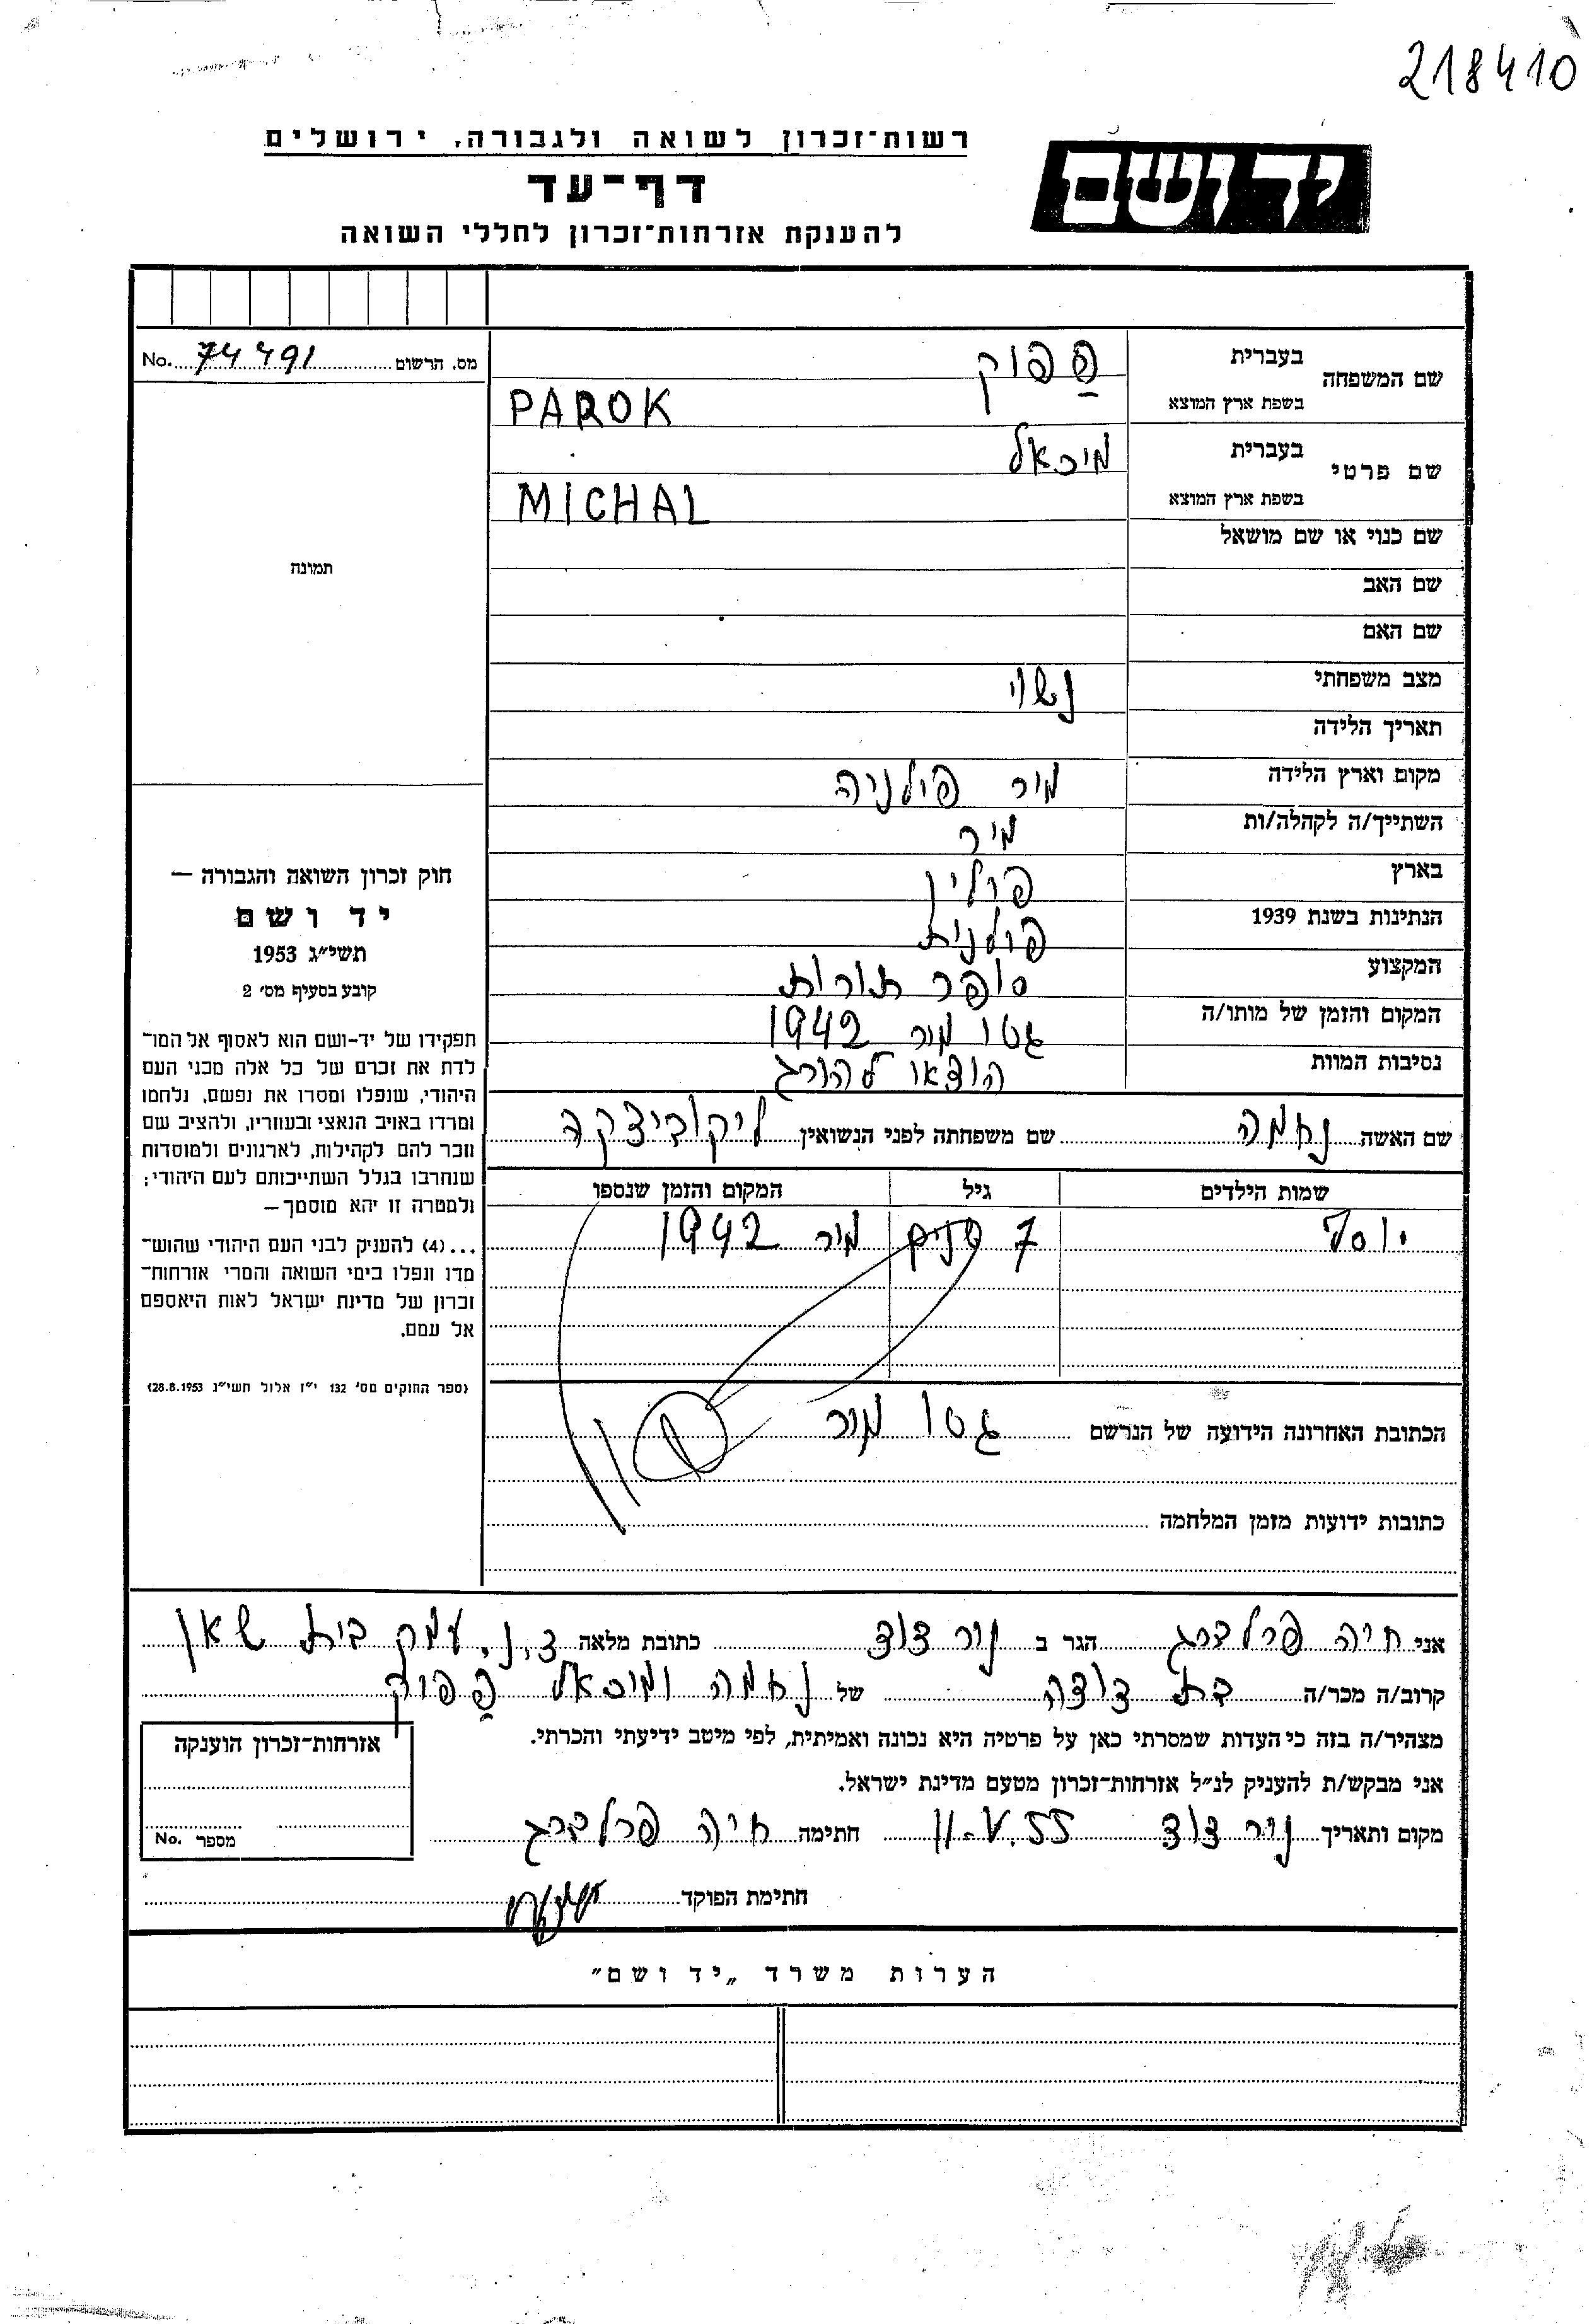 218410
רשות־זכרון לשואה ולגבורה, ירושלים
יד ושם
דף־עד
להענקת אזרחות־זכרון לחללי השואה
מס. הרשום 74491 No.
שם המשפחה בעברית
בשפת ארץ המוצא PAROK
שם פרטי בעברית מיכאל
בשפת ארץ המוצא MICHAL
שם כנוי או שם מושאל
תמונה
שם האב
שם האם
מצב משפחתי נשוי
תאריך הלידה
מקום וארץ הלידה מיר פולניה
השתייך/ה לקהלה/ות מיר
בארץ פולין
הנתינות בשנת 1939 פולנית
המקצוע סופר תורות
המקום והזמן של מותו/ה גטו מיר 1942
נסיבות המוות הוצאו להורג
שם האשה נחמה שם משפחתה לפני הנשואין ליקוביצקה
שמות הילדים גיל המקום והזמן שנספו
יוסף 7 שנים מיר 1942
הכתובת האחרונה הידועה של הנרשם גטו מיר
כתובות ידועות מזמן המלחמה
חוק זכרון השואה והגבורה —
יד ושם
תשי״ג 1953
קובע בסעיף מס׳ 2
תפקידו של יד-ושם הוא לאסוף אל המו־
לדת את זכרם של כל אלה מבני העם
היהודי, שנפלו ומסרו את נפשם, נלחמו
ומרדו באויב הנאצי ובעוזריו, ולהציב שם
וזכר להם לקהילות, לארגונים ולמוסדות
שנחרבו בגלל השתייכותם לעם היהודי;
ולמטרה זו יהא מוסמך—
...(4) להעניק לבני העם היהודי שהוש־
מדו ונפלו בימי השואה והמרי אזרחות־
זכרון של מדינת ישראל לאות היאספם
אל עמם.
(ספר החוקים מס׳ 132 י״ז אלול תשי״ג 28.8.1953)
אני חיה פרלברג הגר ב נוה דוד כתובת מלאה ד.נ. עמק בית שאן
קרוב/ה מכר/ה בת דודה של נחמה ומיכאל
מצהיר/ה בזה כי העדות שמסרתי כאן על פרטיה היא נכונה ואמיתית, לפי מיטב ידיעתי והכרתי.
אני מבקש/ת להעניק לנ״ל אזרחות־זכרון מטעם מדינת ישראל.
מקום ותאריך נוה דוד 11.V.55 חתימה חיה פרלברג
חתימת הפוקד
אזרחות־זכרון הוענקה
מספר No.
הערות משרד „יד ושם״